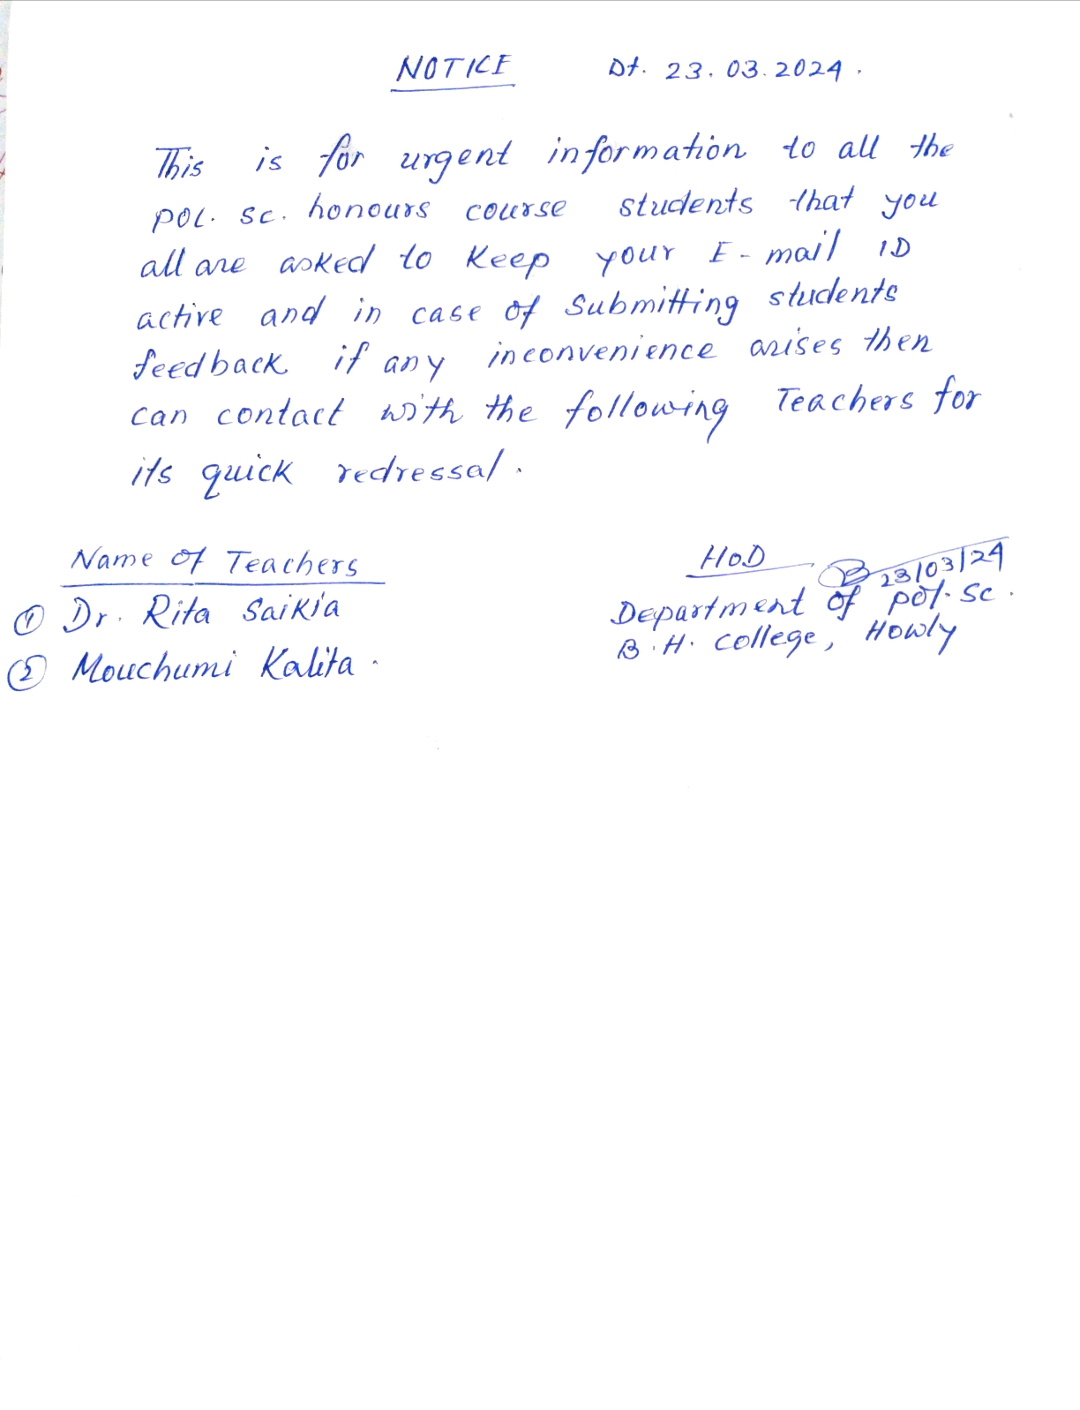 NOTICE Dt. 23.03.2024.
This is for urgent information to all the
Pol. Sc. honours course students that you
all are asked to keep your E-mail ID
active and in case of Submitting students
feedback if any inconvenience arises then
can contact with the following Teachers for
its quick redressal.
Name of Teachers
① Dr. Rita Saikia
② Mouchumi Kalita.
HoD
23/03/24
Department of Pol. Sc.
B.H. College, Howly